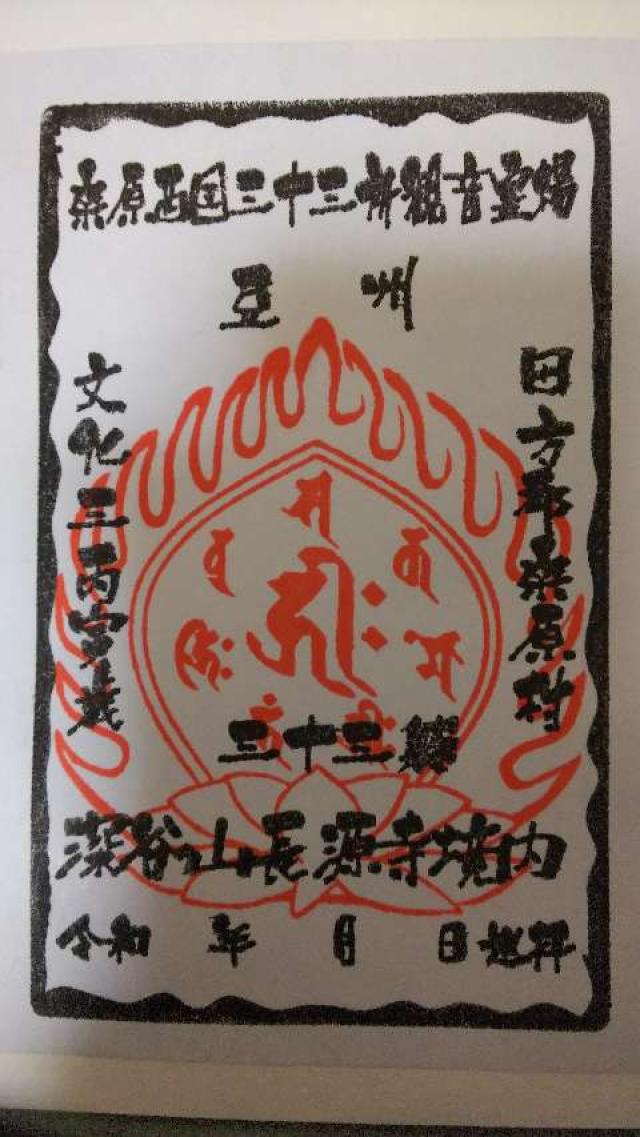 桑原西国三十三所觀音霊場
豆州
田方郡桑原村
文化三丙寅歳
三十三躰
深谷山長源寺境内
令和 年 月 日 巡拝